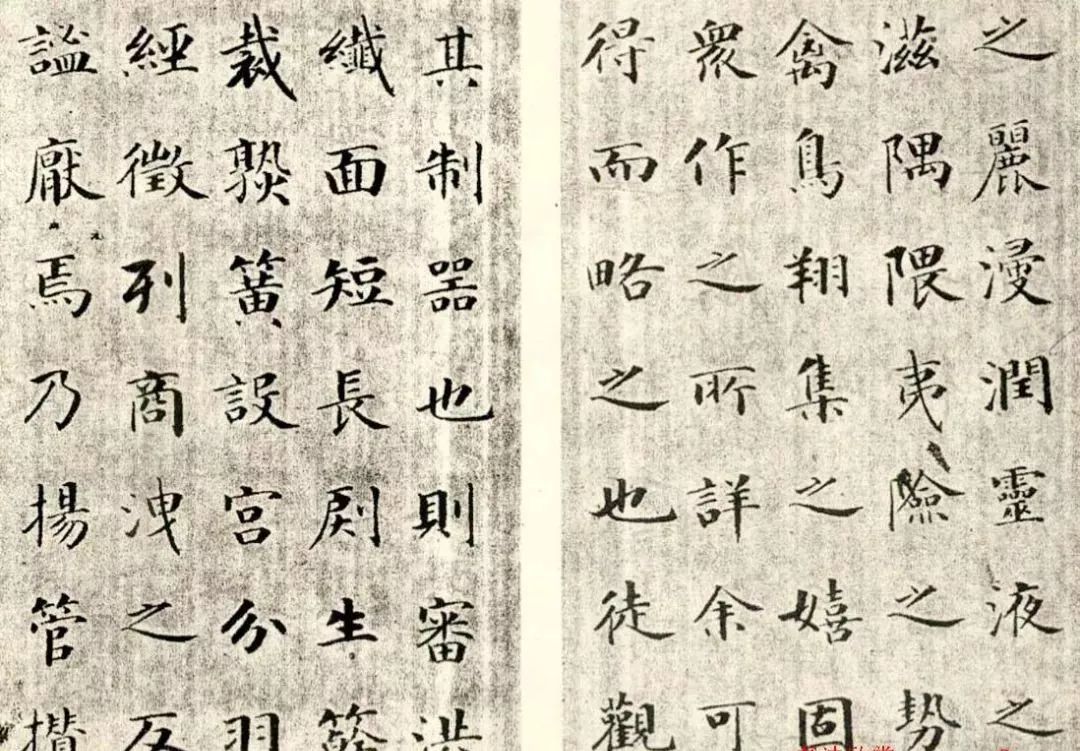 之麗漫潤靈液之
滋隅隈夷險之勢
禽鳥翔集之嬉固
眾作之所詳余可
得而略之也徒觀
其制器也則審洪
纖面短長生簳
裁熟簧設宮分羽
經徵列商洩之反
謐厭焉乃揚管攢